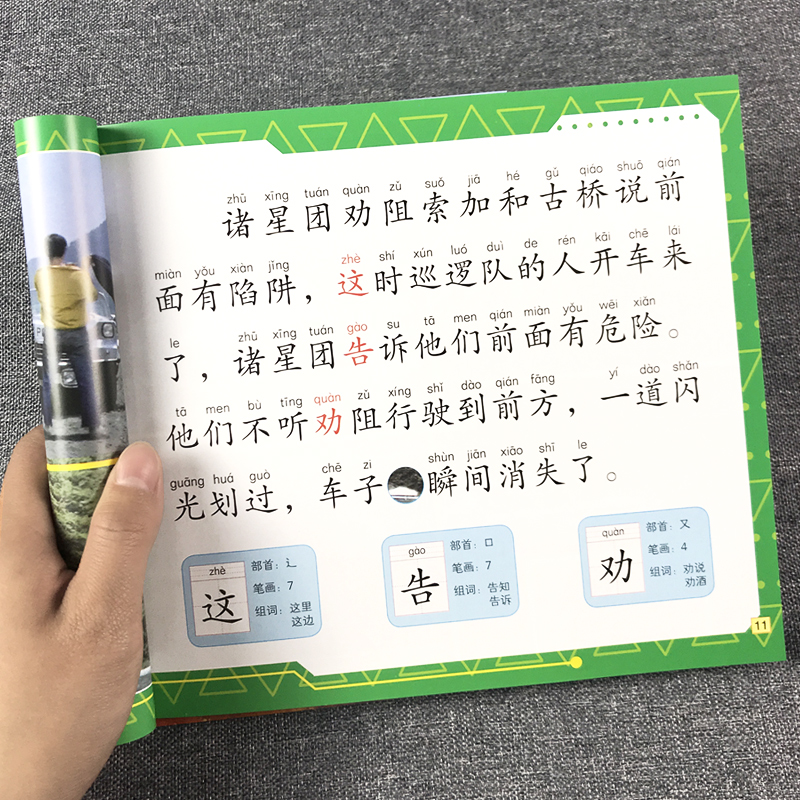 zhū xīng tuán quàn zǔ suǒ jiā hé gǔ qiáo shuō qián
诸星团劝阻索加和古桥说前
miàn yǒu xiàn jǐng zhè shí xún luó duì de rén kāi chē lái
面有陷阱，这时巡逻队的人开车来
le zhū xīng tuán gào su tā men qián miàn yǒu wēi xiǎn
了，诸星团告诉他们前面有危险。
tā men bù tīng quàn zǔ xíng shǐ dào qián fāng yí dào shǎn
他们不听劝阻行驶到前方，一道闪
guāng huá guò chē zi shùn jiān xiāo shī le
光划过，车子瞬间消失了。
zhè
这
部首：辶
笔画：7
组词：这里
这边
gào
告
部首：口
笔画：7
组词：告知
告诉
quàn
劝
部首：又
笔画：4
组词：劝说
劝酒
11